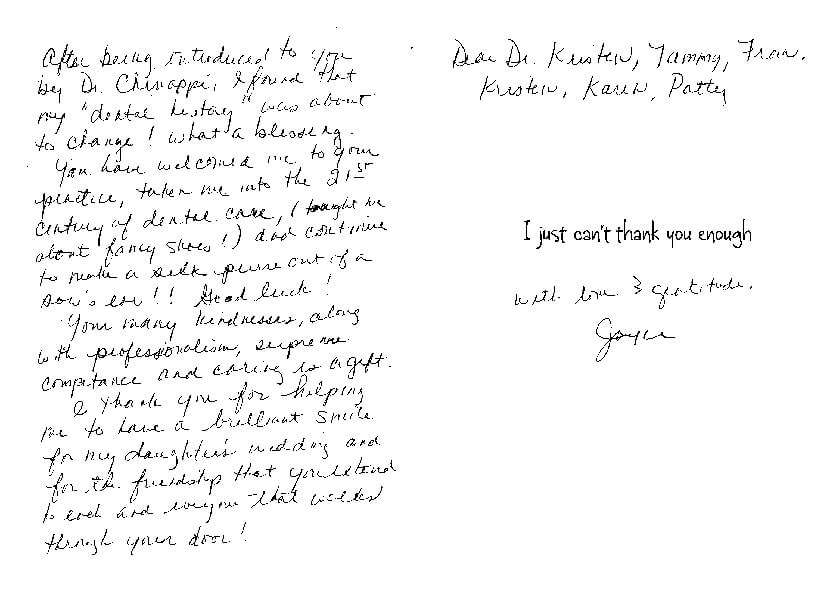 After being introduced to you
by Dr. Chinappi, I found that
my "dental history" was about
to change! what a blessing.
You have welcomed me to your
practice, taken me into the 21st
century of dental care, (taught me
about fancy shoes!) and continue
to make a silk purse out of a
sow's ear!! Good luck!
Your many kindnesses, along
with professionalism, supreme
competance and caring is a gift.
I thank you for helping
me to have a brilliant smile
for my daughter's wedding and
for the friendship that you extend
to each and everyone that walks
through your door!
Dear Dr. Kristen, Tammy, Fran,
Kristen, Karen, Patty
I just can't thank you enough
with love & gratitude,
Joyce